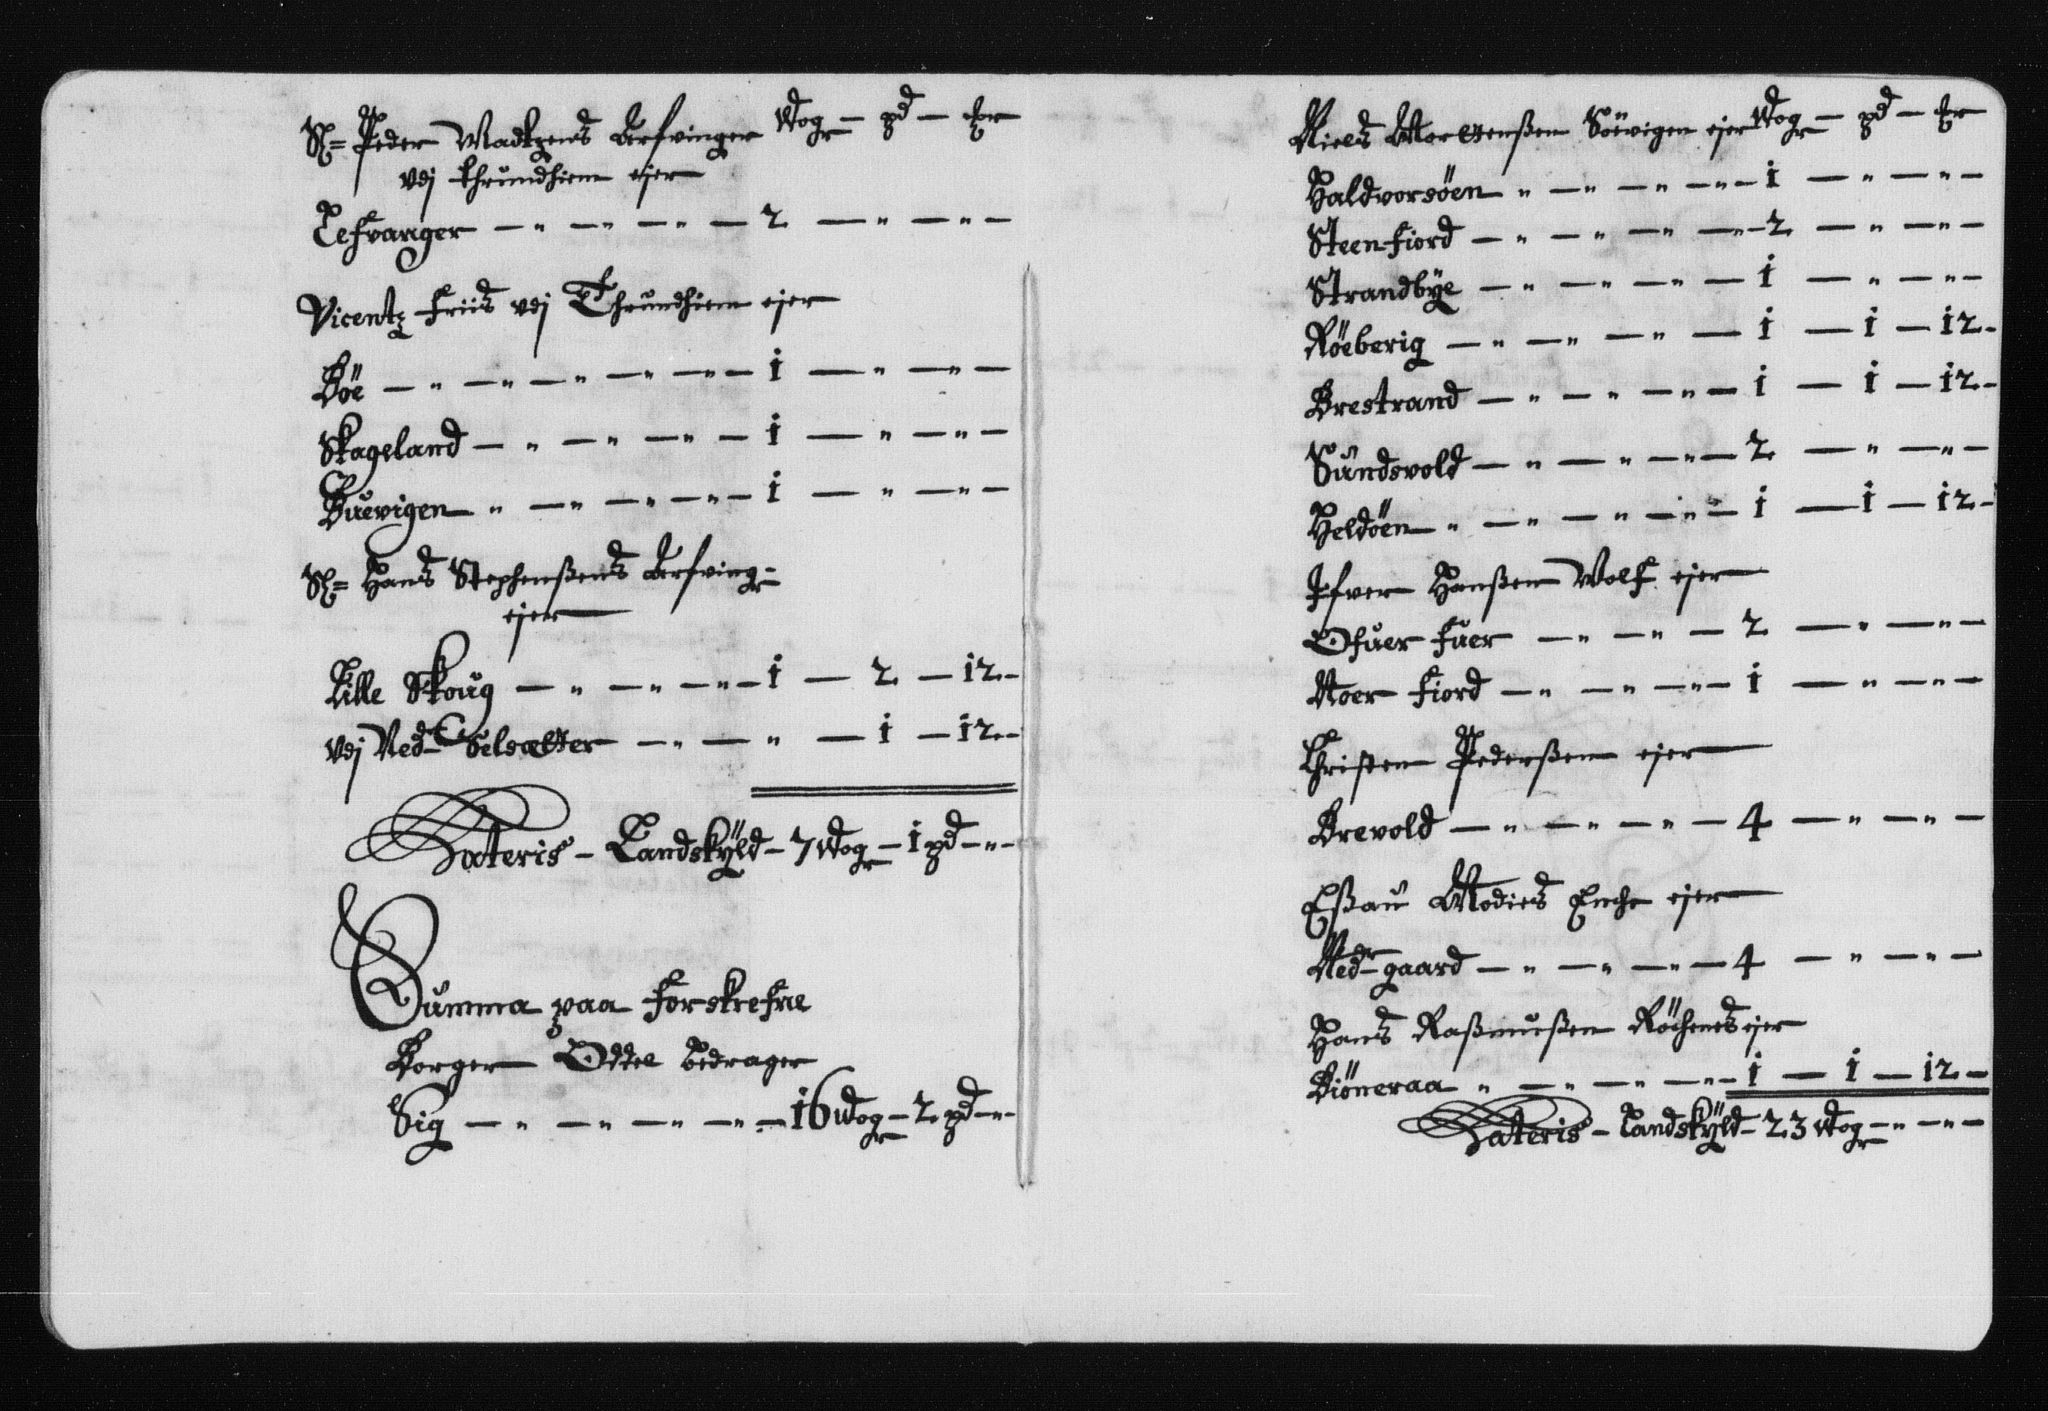 Sl= Peder Madtzens Arfvinger Wogr — pd — Mr
vdj Thrundhiem ejer
Lefvanger — „ — „ — „ — „ — 2 — „ — „ —
Vicentz Friis vdj Thrundhiem ejer
Böe — „ — „ — „ — „ — „ — 1 — „ — „ —
Skageland — „ — „ — „ — 1 — „ — „ —
Buevigen — „ — „ — „ — „ — 1 — „ — „ —
Sl= Hans Stephenßens Arfvingr
ejer
Lille Skoug — „ — „ — „ — 1 — 2 — 12 -
vdj Ned- Selsætter — „ — „ — 1 — 12 -
Lateris - Landskÿld - 7 Wogr - 1 pd - „ -
Summa paa Forskrefne
Borger Oddel bedrager
Sig — „ — „ — „ — „ — 16 Wogr - 2 pd - „ -
Niels Mortenßen Söevigen ejer Wogr — pd — Mr
Haldvorsöen „ — „ — „ — „ — 1 — „ — „ —
Steenfiord — „ — „ — „ — „ — 2 — „ — „ —
Strandbÿe — „ — „ — „ — 1 — „ — „ —
Röeberig — „ — „ — „ — 1 — 1 — 12 -
Brestrand — „ — „ — „ — 1 — 1 — 12 -
Sundsvold — „ — „ — „ — 2 — „ — „ —
Heldöen „ — „ — „ — „ — 1 — 1 — 12 -
Ifver Hanßen Wolf ejer
Ofuer Fuer — „ — „ — 2 — „ — „ —
Noer Fiord — „ — „ — „ — 1 — „ — „ —
Christen Pederßen ejer
Brevold — „ — „ — „ — 4 — „ — „ —
Eßau Modies Enche ejer
Nedr gaard — „ — „ — „ — 4 — „ — „ —
Hans Raßmußen Röchenes ejer
Biöneraa „ — „ — „ — „ — 1 — 1 — 12 —
Lateris - Landskÿld - 23 Wogr - „ - „ -